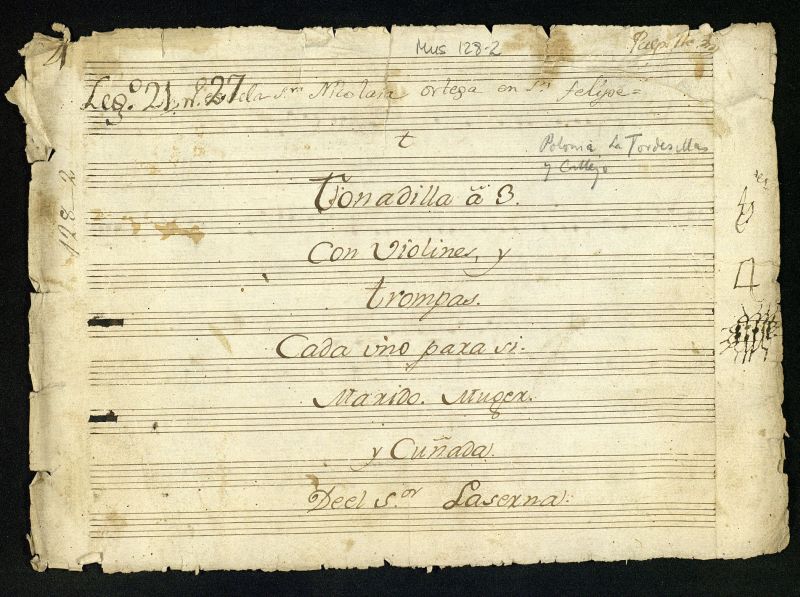 Mus 128-2
Leg.º 21. n.º 27
Nicolasa ortega en Sn felipe =
t
Polonia La Tordesillas
y Callejo
128-2
Tonadilla â 3.
Con Violines, y
trompas.
Cada vno para si.
Marido. Muger.
y Cuñada.
Deel S.or Laserna.